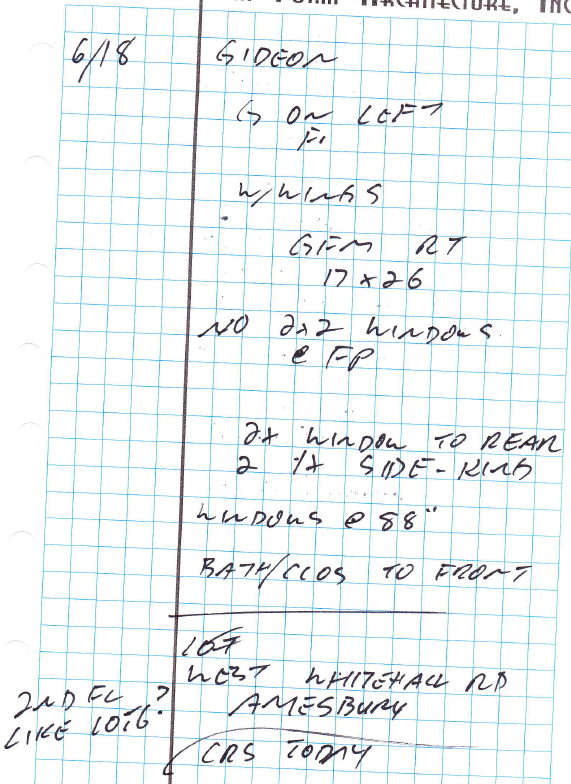 FORM ARCHITECTURE, INC
6/18 GIDEON
G ON LEFT
W/WINGS
GFM RT
17 x 26
NO 2x2 WINDOWS
@ FP
2x WINDOW TO REAR
2 1x SIDE-KIND
WINDOWS @ 88"
BATH/CLOS TO FRONT
LOT
WEST WHITEHALL RD
AMESBURY
2ND FL ?
LIKE LOT6
CRS TODAY